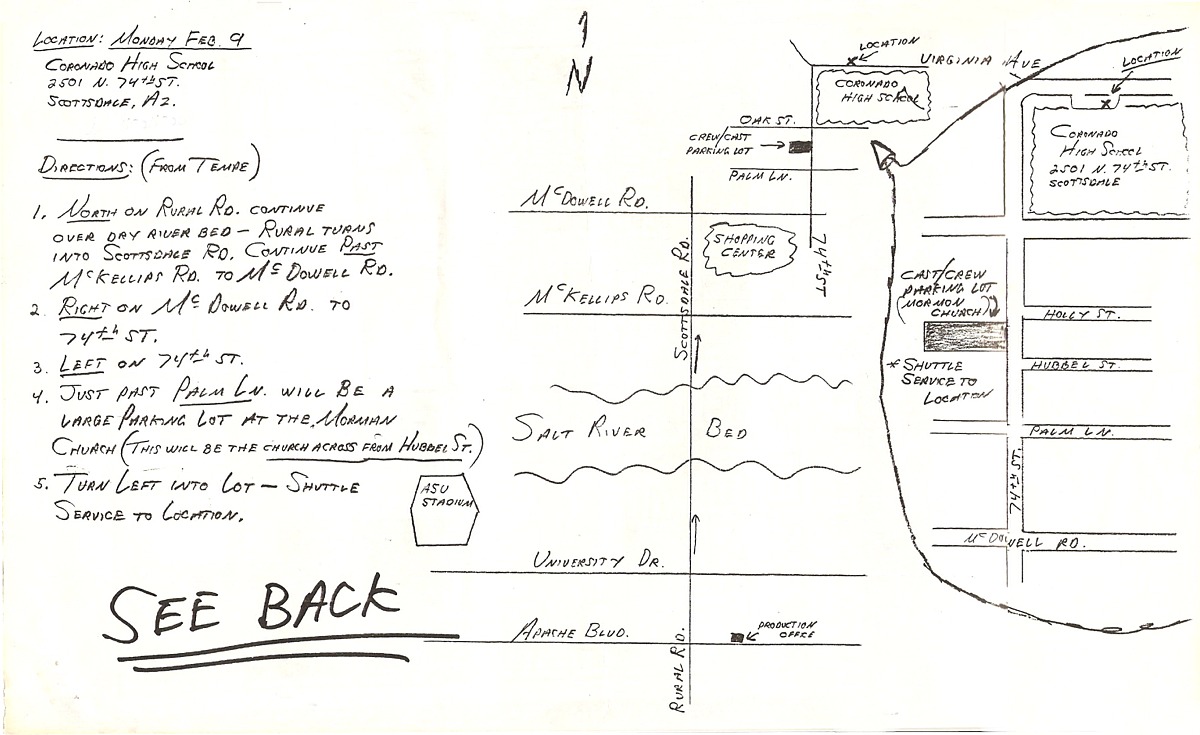 LOCATION: MONDAY FEB. 9
CORONADO HIGH SCHOOL
2501 N. 74TH ST.
SCOTTSDALE, AZ.
DIRECTIONS: (FROM TEMPE)
1. NORTH ON RURAL RD. CONTINUE
OVER DRY RIVER BED - RURAL TURNS
INTO SCOTTSDALE RD. CONTINUE PAST
MCKELLIPS RD. TO MCDOWELL RD.
2. RIGHT ON MCDOWELL RD. TO
74TH ST.
3. LEFT ON 74TH ST.
4. JUST PAST PALM LN. WILL BE A
LARGE PARKING LOT AT THE MORMAN
CHURCH (THIS WILL BE THE CHURCH ACROSS FROM HUBBEL ST.)
5. TURN LEFT INTO LOT - SHUTTLE
SERVICE TO LOCATION.
SEE BACK
ASU
STADIUM
N
LOCATION
VIRGINIA AVE
CORONADO
HIGH SCHOOL
OAK ST.
CREW/CAST
PARKING LOT
PALM LN.
MCDOWELL RD.
SHOPPING
CENTER
74TH ST
SCOTTSDALE RD.
MCKELLIPS RD.
SALT RIVER BED
UNIVERSITY DR.
APACHE BLVD.
PRODUCTION
OFFICE
RURAL RD.
LOCATION
CORONADO
HIGH SCHOOL
2501 N. 74TH ST.
SCOTTSDALE
CAST/CREW
PARKING LOT
(MORMON
CHURCH)
HOLLY ST.
HUBBEL ST.
* SHUTTLE
SERVICE TO
LOCATION
PALM LN.
74TH ST.
MCDOWELL RD.